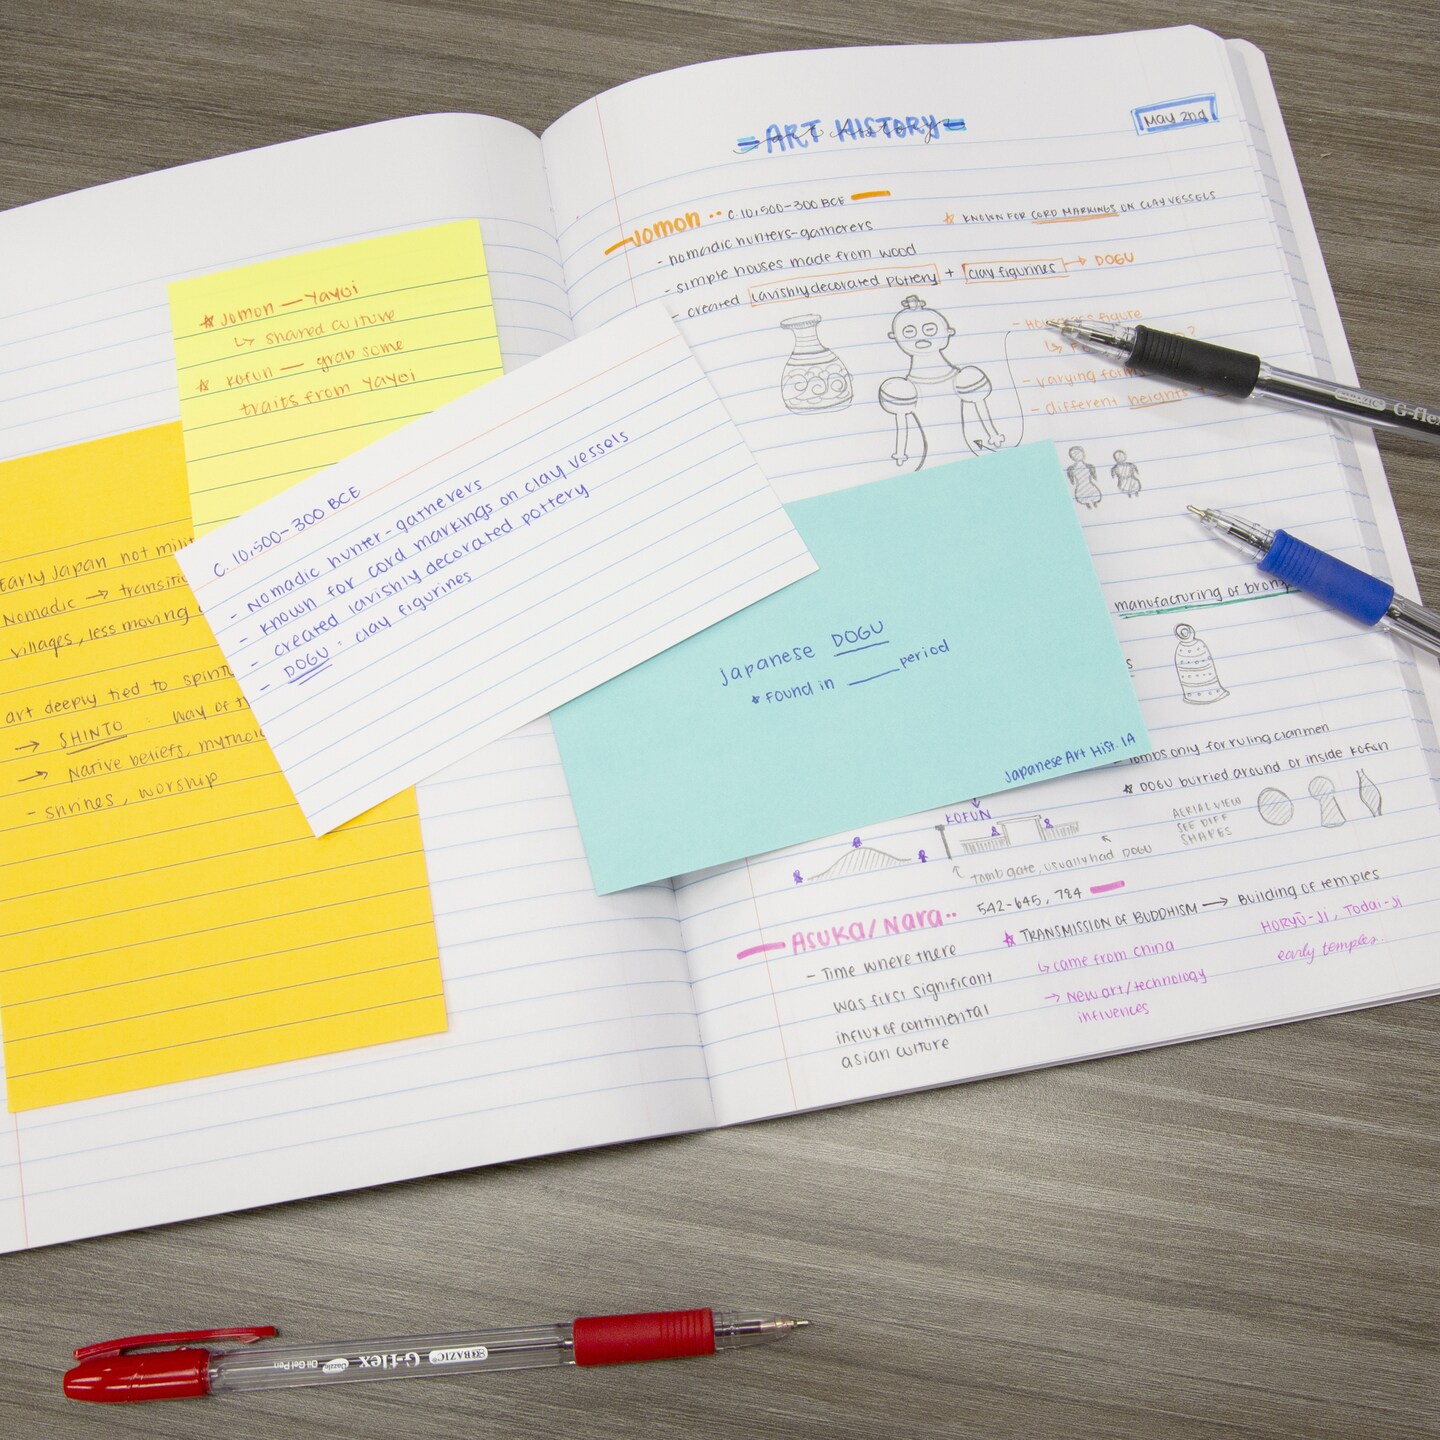 ART HISTORY
art history
May 2nd
Jomon ·· C. 10,500-300 BCE
☆ KNOWN FOR CORD MARKINGS ON CLAY VESSELS
- nomadic hunters-gatherers
- simple houses made from wood
- created lavishly decorated pottery + clay figurines → DOGU
- varying
- different heights
manufacturing of
tombs only for ruling clanmen
★ DOGU burried around or inside kofun
AERIAL VIEW
SEE DIFF
SHAPES
KOFUN
Tomb gate, usually had DOGU
ASUKA/NARA·· 542-645, 784
- Time where there
was first significant
influx of continental
asian culture
★ TRANSMISSION OF BUDDHISM → Building of temples
↳ came from china
→ New art/technology
influences
HORYŪ-JI, Todai-Ji
early temples.
★ Jomon — Yayoi
↳ shared culture
★ kofun — grab some
traits from Yayoi
Early Japan not
Nomadic →
villages, less moving
art deeply tied to
→ SHINTO : Way of
→ Native beliefs,
- shrines, worship
C. 10,500-300 BCE
- Nomadic hunter-gatherers
- known for cord markings on clay vessels
- created lavishly decorated pottery
- DOGU : clay figurines
Japanese DOGU
★ Found in ______ period
Japanese Art Hist. 1A
BAZIC G-flex
BAZIC G-flex Dazzle Oil Gel Pen